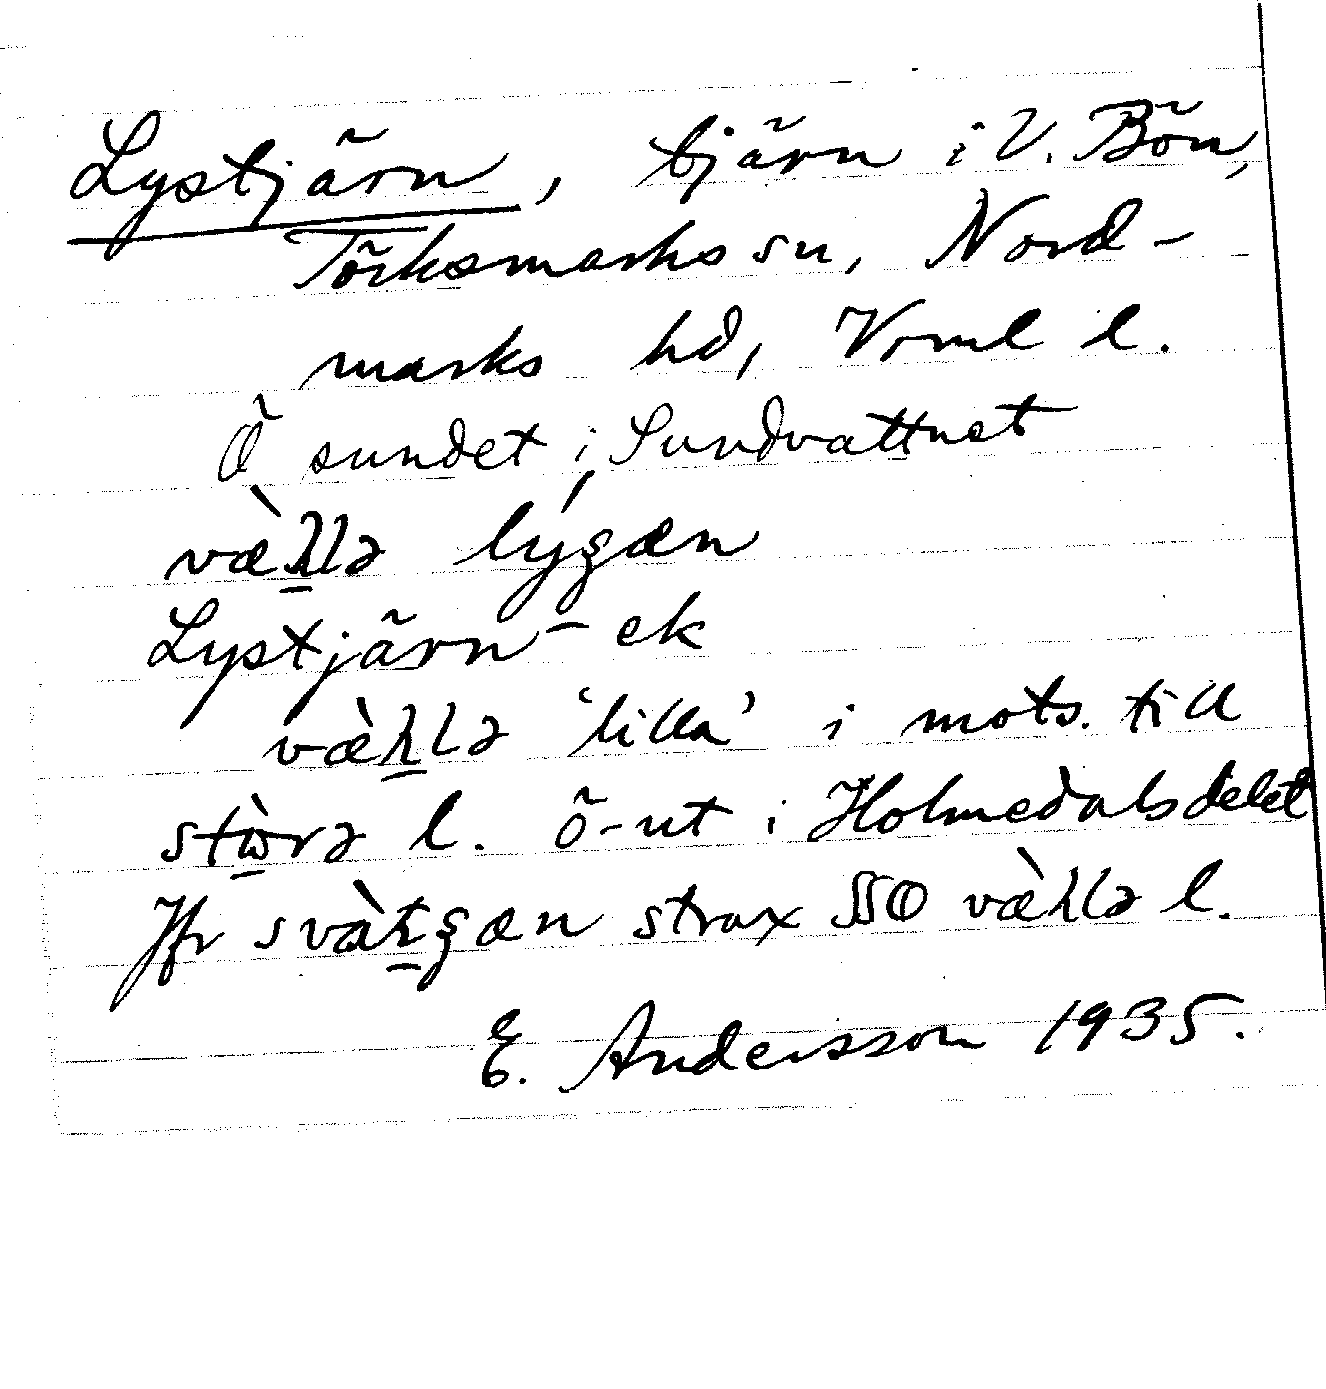 Lystjärn, tjärn i V. Bön,
Törksmarks sn, Nord-
marks hd, Vrml l.
Ö sundet i Sundvattnet
lýʂæn
Lystjärn-ek
'lilla' i mots. till
l. ö-ut i Holmedalsdelet
Jfr strax SSO l.
E. Andersson 1935.